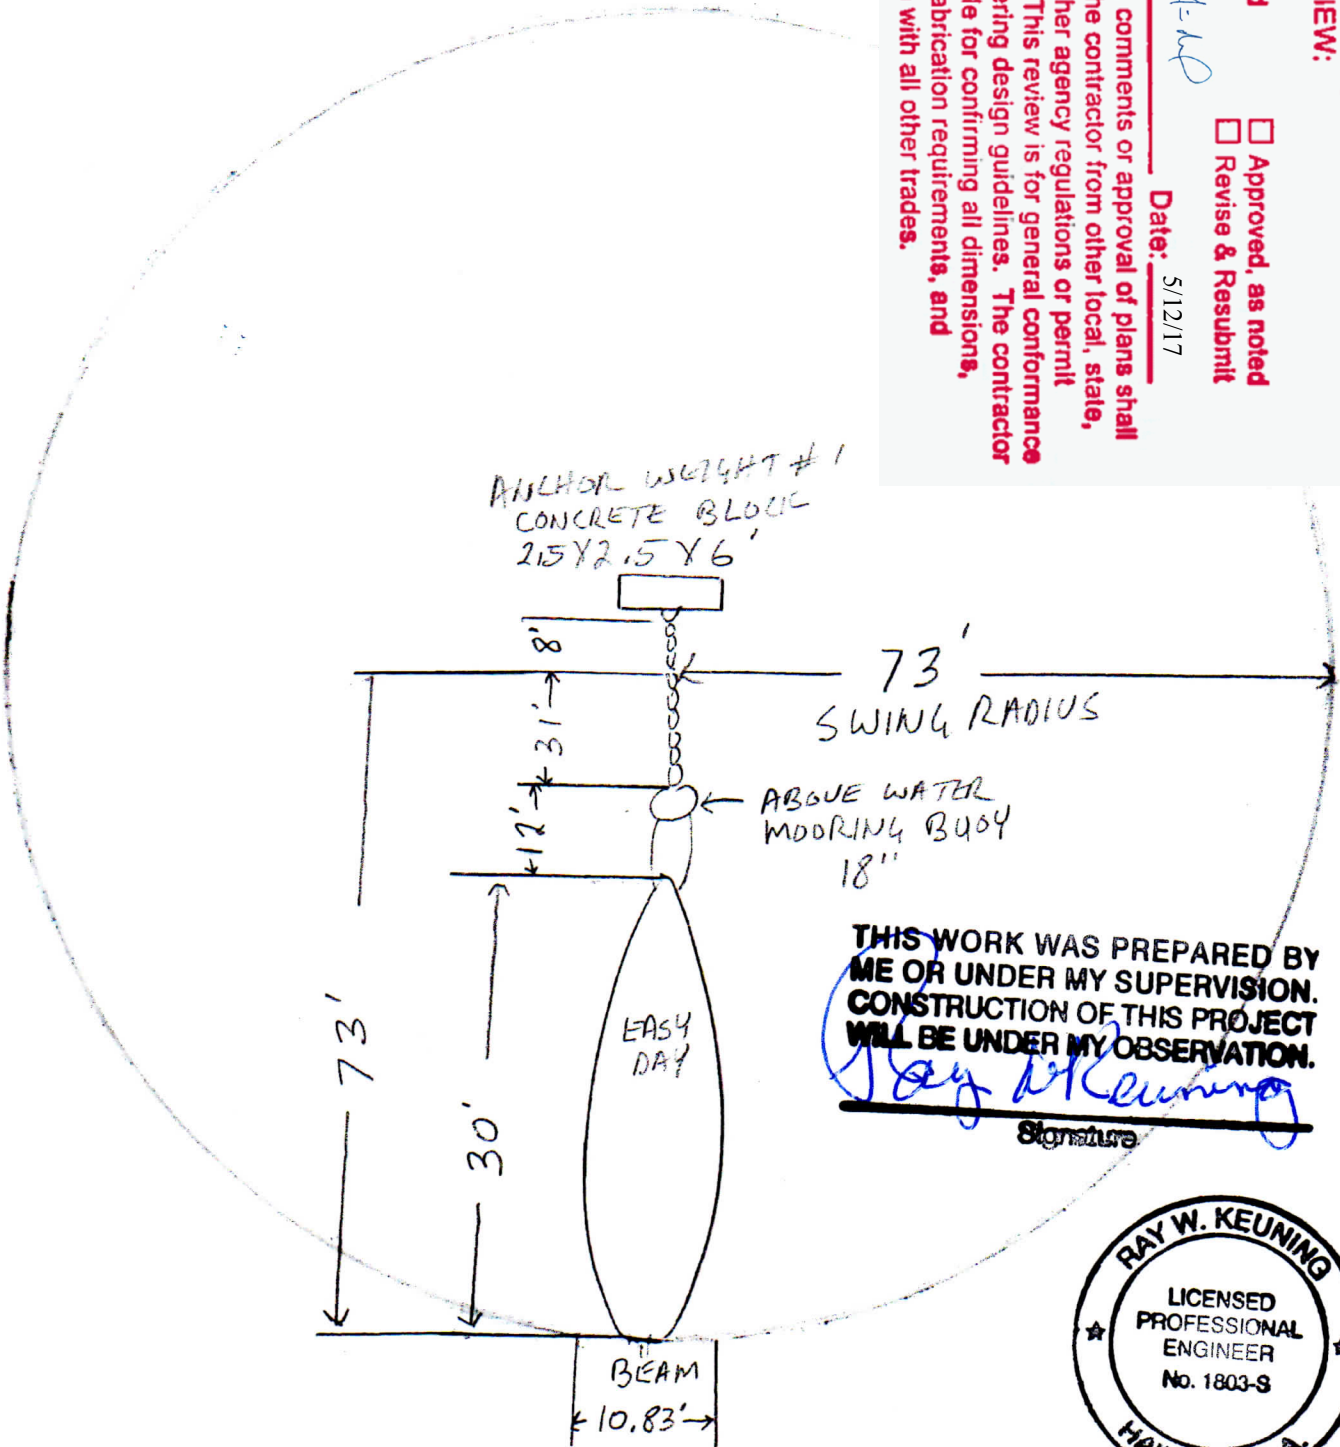 IEW:
Approved, as noted
Revise & Resubmit
Date: 5/12/17
comments or approval of plans shall
ne contractor from other local, state,
her agency regulations or permit
This review is for general conformance
ering design guidelines. The contractor
le for confirming all dimensions,
abrication requirements, and
with all other trades.
ANCHOR WEIGHT #1
CONCRETE BLOCK
2.5X2.5X6'
8'
73'
SWING RADIUS
31'
ABOVE WATER
MOORING BUOY
18"
12'
THIS WORK WAS PREPARED BY
ME OR UNDER MY SUPERVISION.
CONSTRUCTION OF THIS PROJECT
WILL BE UNDER MY OBSERVATION.
Ray W Keuning
Signature
EASY
DAY
73'
30'
BEAM
10.83'
RAY W. KEUNING
LICENSED
PROFESSIONAL
ENGINEER
No. 1803-S